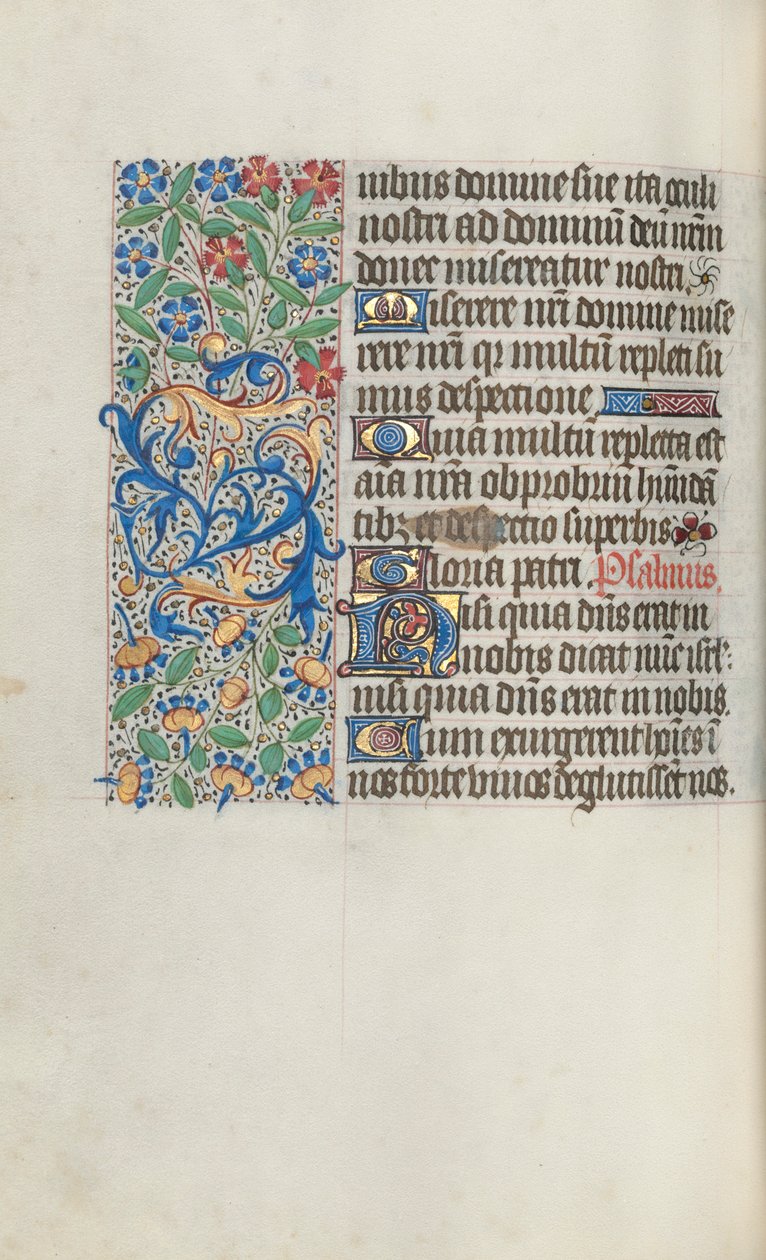 nibus domine sue ita oculi
nostri ad dominū deū nr̄m
donec misereatur nostri.
Miserere nr̄i domine mise
rere nr̄i q̄ multū repleti su
mus despectione
Quia multū repleta est
aīa nr̄a obprobriū hūndā
tibꝫ et despectio superbis
Gloria patri . Psalmus.
Nisi quia dn̄s erat in
nobis dicat nūc isrl̄:
nisi quia dn̄s erat in nobis.
Cum exurgerent hoīes ī
nos forte vivos deglutissēt nos.